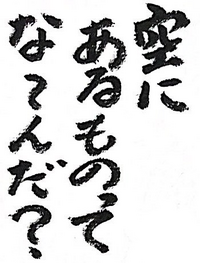 空に
あるものって
なんだ？